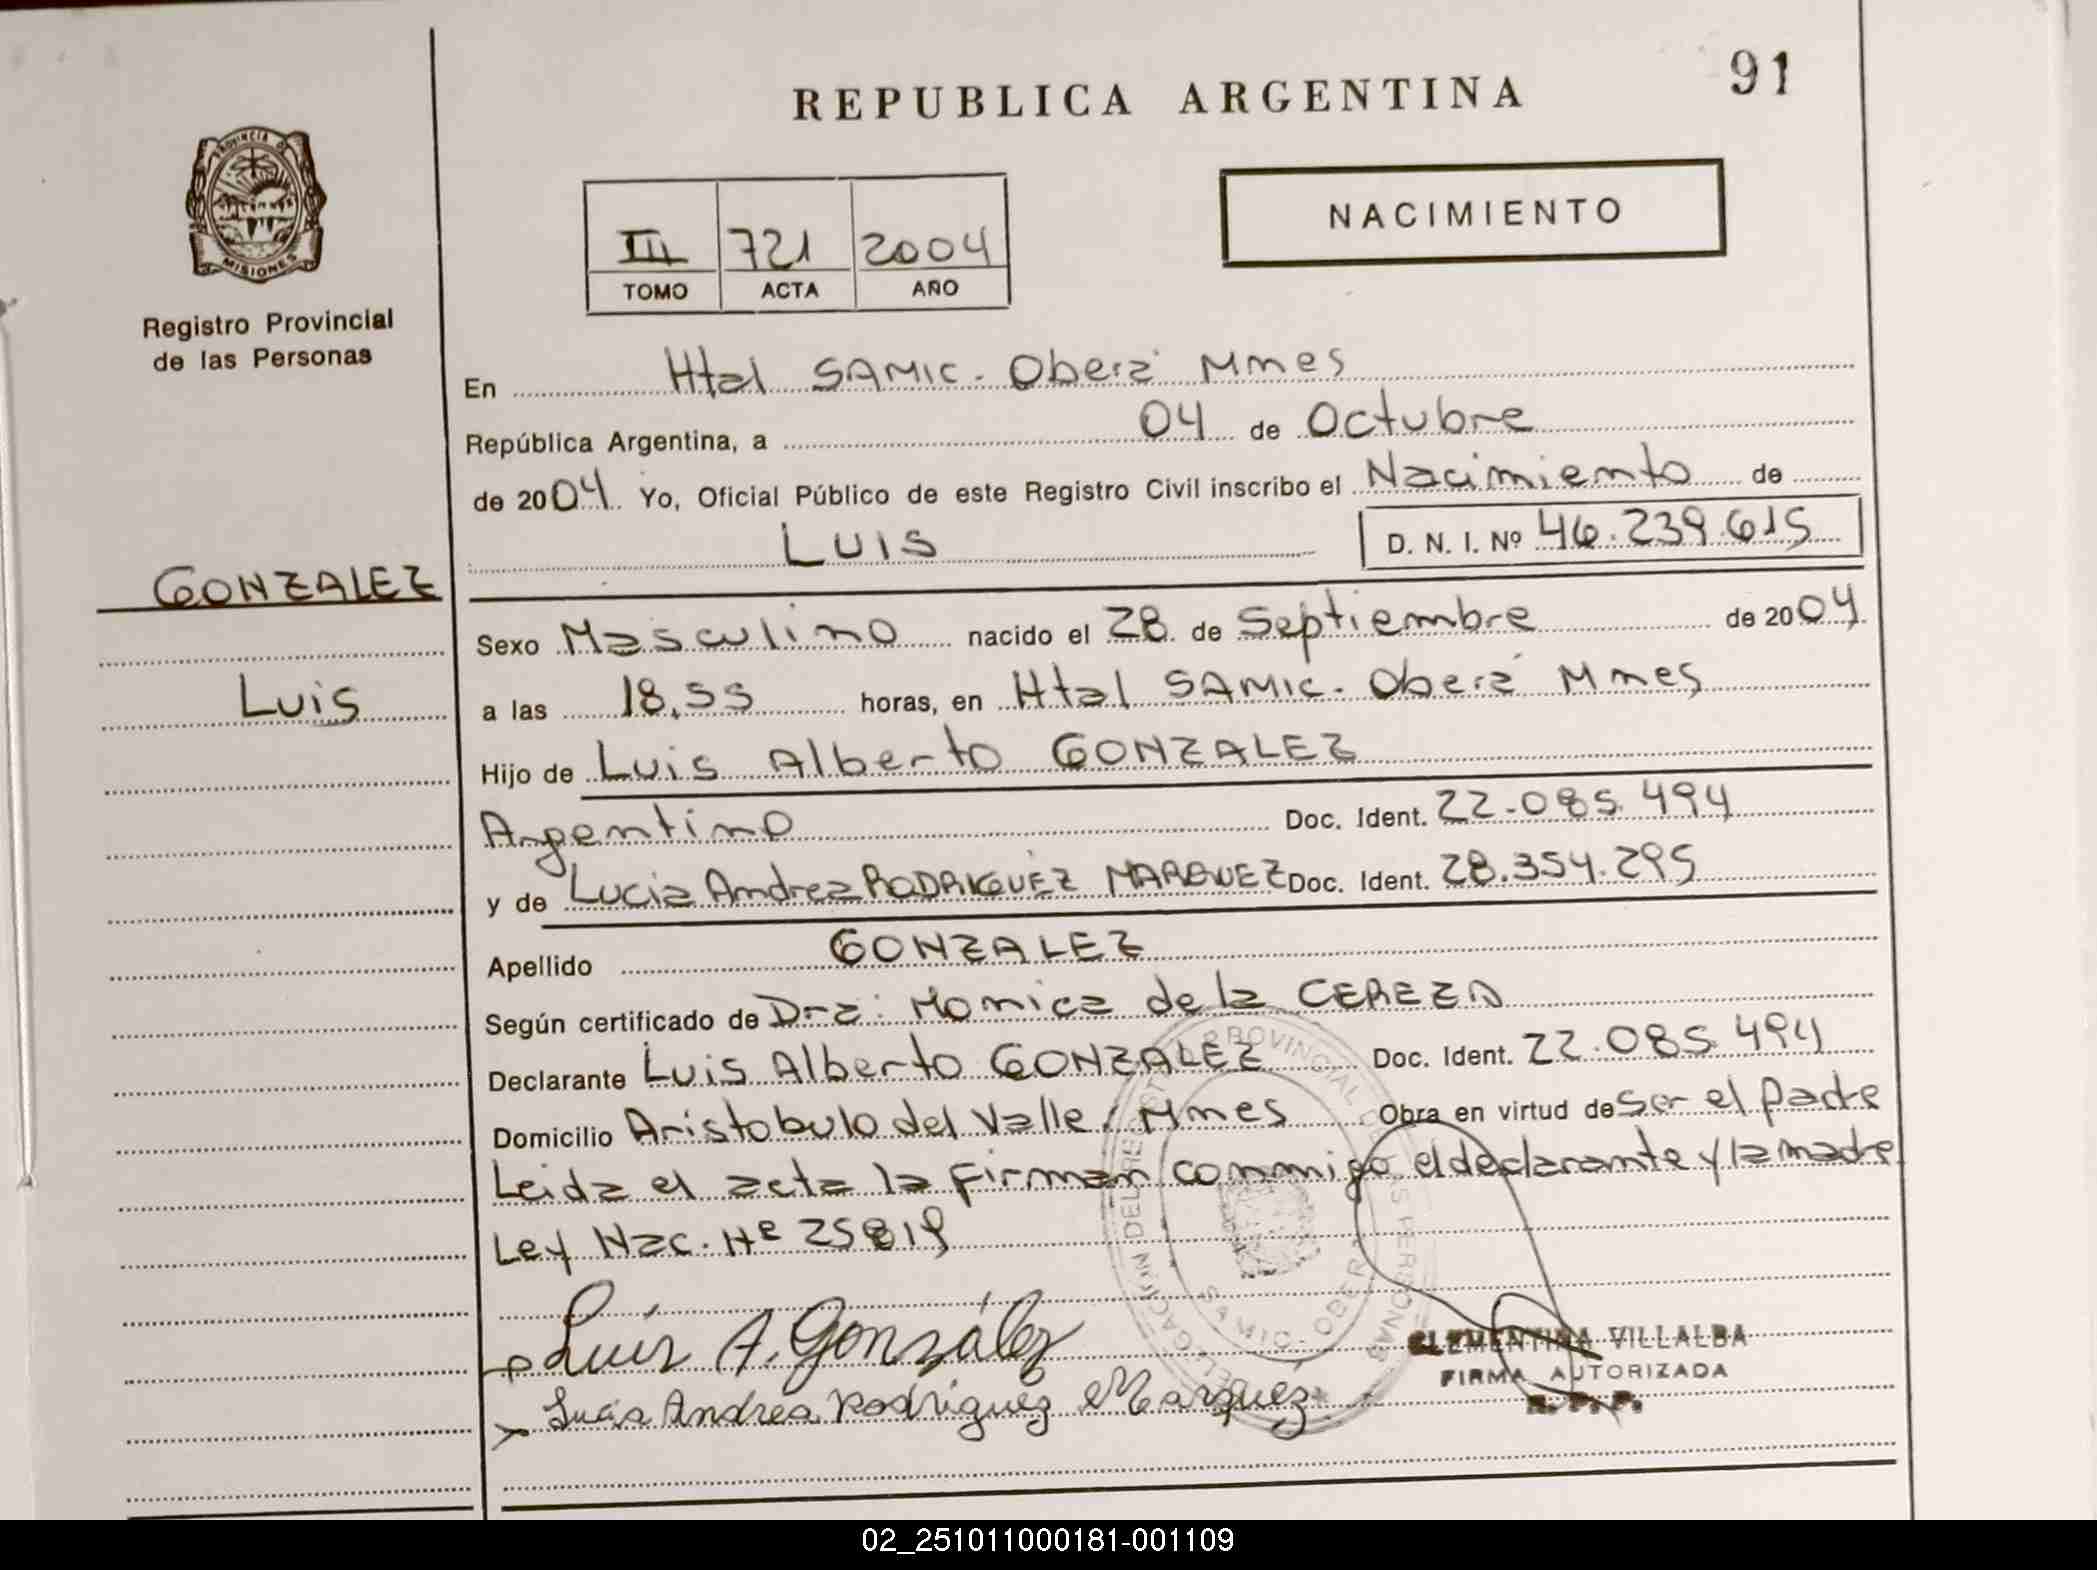 REPUBLICA ARGENTINA
91
PROVINCIA DE
MISIONES
Registro Provincial
de las Personas
III 721 2004
TOMO ACTA AÑO
NACIMIENTO
En Htal SAMIC - Oberá Mnes
República Argentina, a 04 de Octubre
de 2004 Yo, Oficial Público de este Registro Civil inscribo el Nacimiento de
LUIS D. N. I. Nº 46.239.615
GONZALEZ
Luis
Sexo Masculino nacido el 28 de Septiembre de 2004
a las 18,55 horas, en Htal SAMIC - Oberá Mnes
Hijo de Luis Alberto GONZALEZ
Argentino Doc. Ident. 22.085.494
y de Lucia Andrea RODRIGUEZ MARQUEZ Doc. Ident. 28.354.295
Apellido GONZALEZ
Según certificado de Dra: Monica de la CEREZA
Declarante Luis Alberto GONZALEZ Doc. Ident. 22.085.494
Domicilio Aristobulo del Valle, Mnes Obra en virtud de ser el padre
Leida el acta la firman conmigo el declarante y la madre
Ley Nac. Nº 25819
DELEGACION DEL REGISTRO PROVINCIAL DE LAS PERSONAS
SAMIC - OBERA
Luis A. González
Lucía Andrea Rodriguez Marquez
CLEMENTINA VILLALBA
FIRMA AUTORIZADA
R. P. P.
02_251011000181-001109